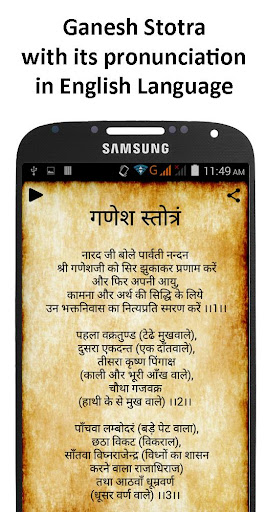 Ganesh Stotra
with its pronunciation
in English Language
SAMSUNG
G 11:49 AM
गणेश स्तोत्रं
नारद जी बोले पार्वती नन्दन
श्री गणेशजी को सिर झुकाकर प्रणाम करें
और फिर अपनी आयु,
कामना और अर्थ की सिद्धि के लिये
उन भक्तनिवास का नित्यप्रति स्मरण करें ।।1।।
पहला वक्रतुण्ड (टेढे मुखवाले),
दुसरा एकदन्त (एक दाँतवाले),
तीसरा कृष्ण पिंगाक्ष
(काली और भूरी आँख वाले),
चौथा गजवक्र
(हाथी के से मुख वाले) ।।2।।
पाँचवा लम्बोदरं (बड़े पेट वाला),
छठा विकट (विकराल),
साँतवा विघ्नराजेन्द्र (विध्नों का शासन
करने वाला राजाधिराज)
तथा आठवाँ धूम्रवर्ण
(धूसर वर्ण वाले) ।।3।।